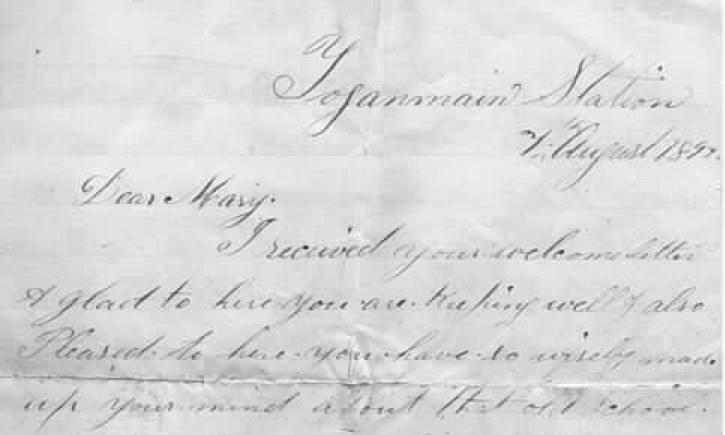 Yoganmain Station
7th August 189
Dear Mary.
I received your welcome letter
& glad to here you are keeping well & also
Pleased to here you have so wisely made
up your mind about that old school.